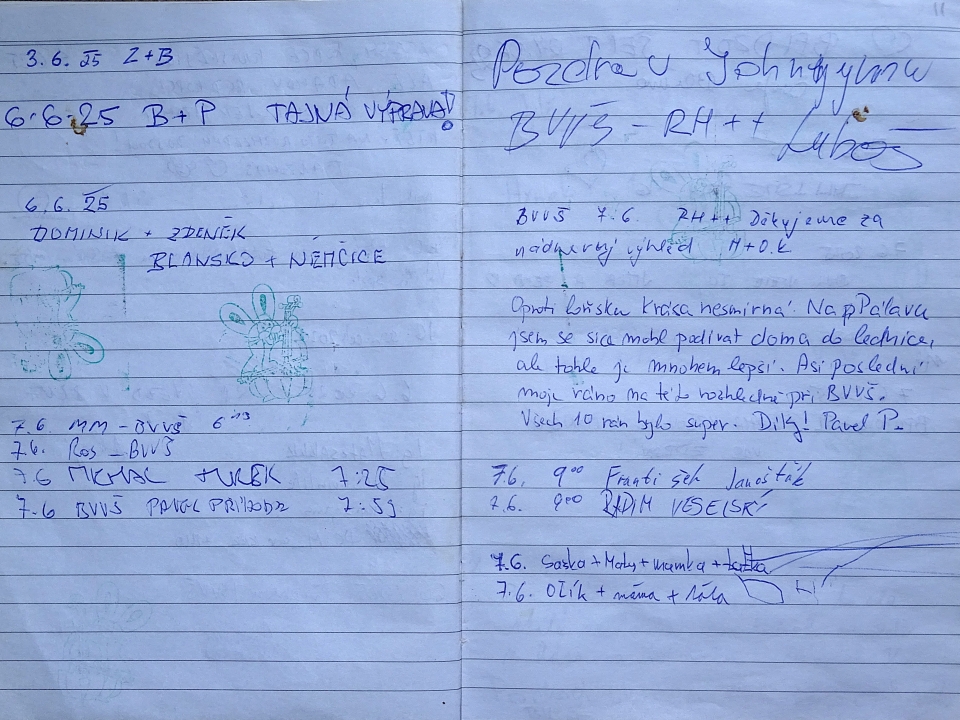 3.6. 25 Z+B
6.6.25 B+P TAJNÁ VÝPRAVA!
6.6. 25
DOMINIK + ZDENĚK
BLANSKO + NĚMČICE
7.6. MM - BVVŠ
7.6. Ros - BVVŠ
7.6 7:25
7.6 BVVŠ PAVEL 7:59
11
Pozdrav
BVVŠ - RH++ Luboš
BVVŠ 7.6. RH++ Děkujeme za
nádherný výhled M+O.K
Oproti loňsku krása nesmírná. Na Pálavu
jsem se sice mohl podívat doma do lednice,
ale tohle je mnohem lepší. Asi poslední
moje ráno na této rozhledně při BVVŠ.
Všech 10 rán bylo super. Díky! Pavel P.
7.6. 900 František Janošťák
7.6. 9:00 RADIM VESELSKÝ
7.6. Saška + Maty + mamka + taťka
7.6. + máma +